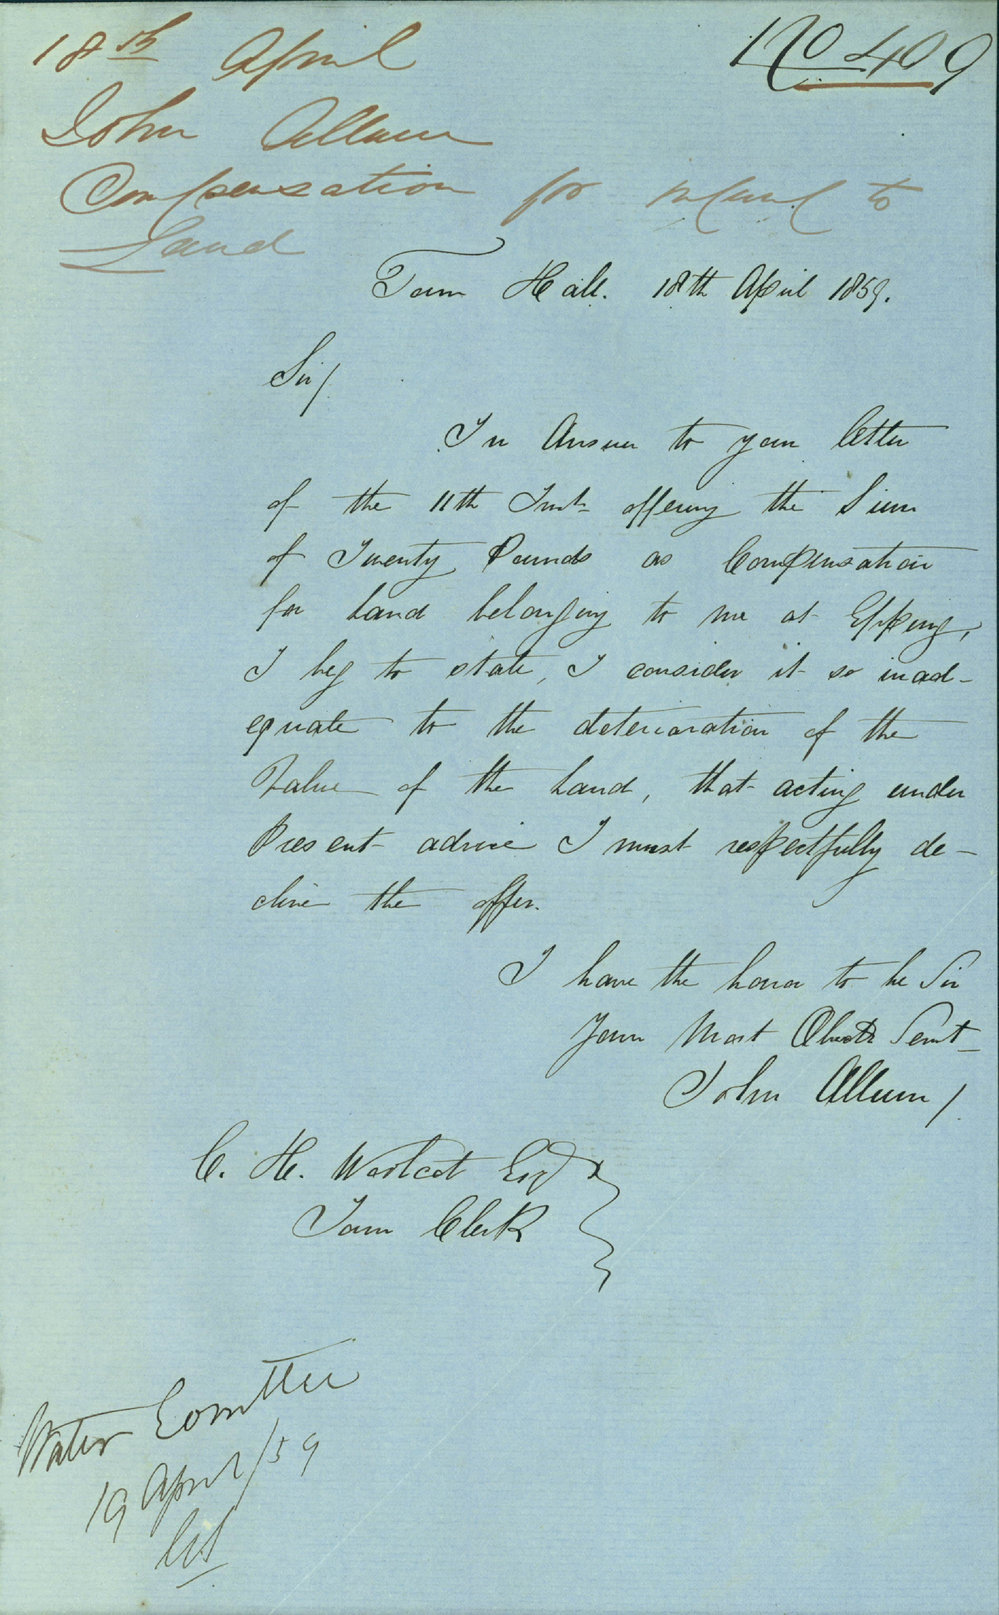 18th April
No 409
John Allum
Compensation for refusal to
Land
Town Hall. 18th April 1859.
Sir/
In Answer to your letter
of the 11th Inst- offering the Sum
of Twenty Pounds as Compensation
for Land belonging to me at Epping,
I beg to state, I consider it so inad-
equate to the deterioration of the
Value of the Land, that acting under
Present advice I must respectfully de-
cline the offer.
I have the honor to be Sir
Your Most Obedt Servt-
John Allum/.
C. H. Woolcott Esqr
Town Clerk
Water Comttee
19 April/59